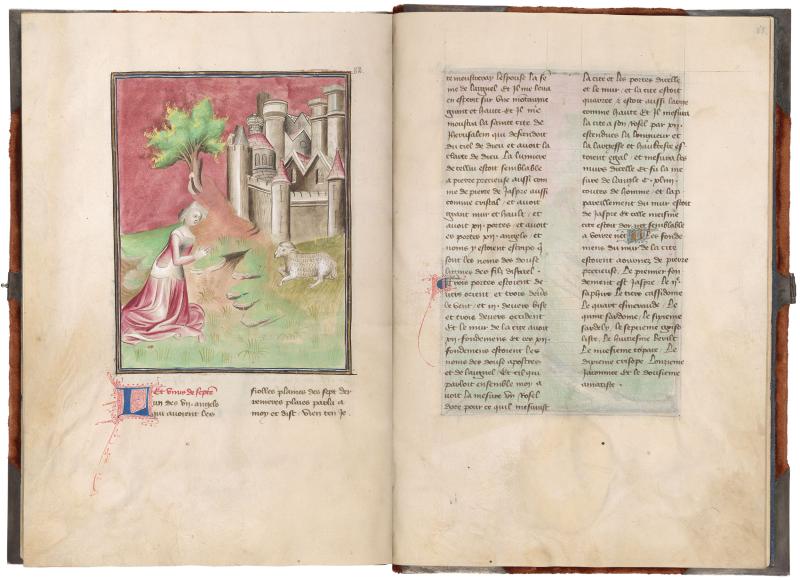 82
Et vnus de septem
un des vij angels
qui auoient les
fiolles plaines des sept der
renieres plaies parla a
moy et dist . vien ten Je .
te moustreray lespouse la fe
me de laignel Et Il me leua
en esperit sur vne montaigne
grant et haute Et Il me
moustra la sainte cite de
Jherusalem qui descendoit
du ciel de dieu et auoit la
clarte de dieu La lumiere
de cellui estoit semblable
a pierre precieuse aussi com
me de pierre de Jaspre aussi
comme cristal / et auoit
grant mur et hault / et
auoit xij . portes . et auoit
es portes xij . angels . et
noms y estoient escrips q
sont les noms des douse
lignies des fils disrael .
trois portes estoient de
uers orient et trois deuers
le vent / et iij . deuers bise
et trois deuers occident
Et le mur de la cite auoit
xij . fondemens et en ces xij .
fondemens estoient les
noms des douse apostres
et de laignel . Et cil qui
parloit ensemble moy a
uoit la mesure dun Rosel
dore pour ce quil mesurast
la cite et les portes dicelle
et le mur / et la cite estoit
quarree & estoit aussi large
comme haute Et Il mesura
la cite a son rosel par xij .
estendues la longueur et
la largesse et haultesse es
toient egal . et mesura les
murs dicelle et fu la me
sure de laugle C . xliiij .
coutes de homme / et la p
pareillement du mur estoit
de Jaspre et celle mesme
cite estoit dor net semblable
a voirre net Les fonde
mens du mur de la cite
estoient aournez de pierre
precieuse . Le premier fon
dement est Jaspre . Le ije
saphire Le tiers cassidome
Le quart esmeraude . Le
quint sardome / le sixieme
sardely / le septieme crisol
liste / le huitiesme beril
Le nuefisme topace . Le
dixieme crisope Lonzieme
Jacomme et le dousieme
amatiste .